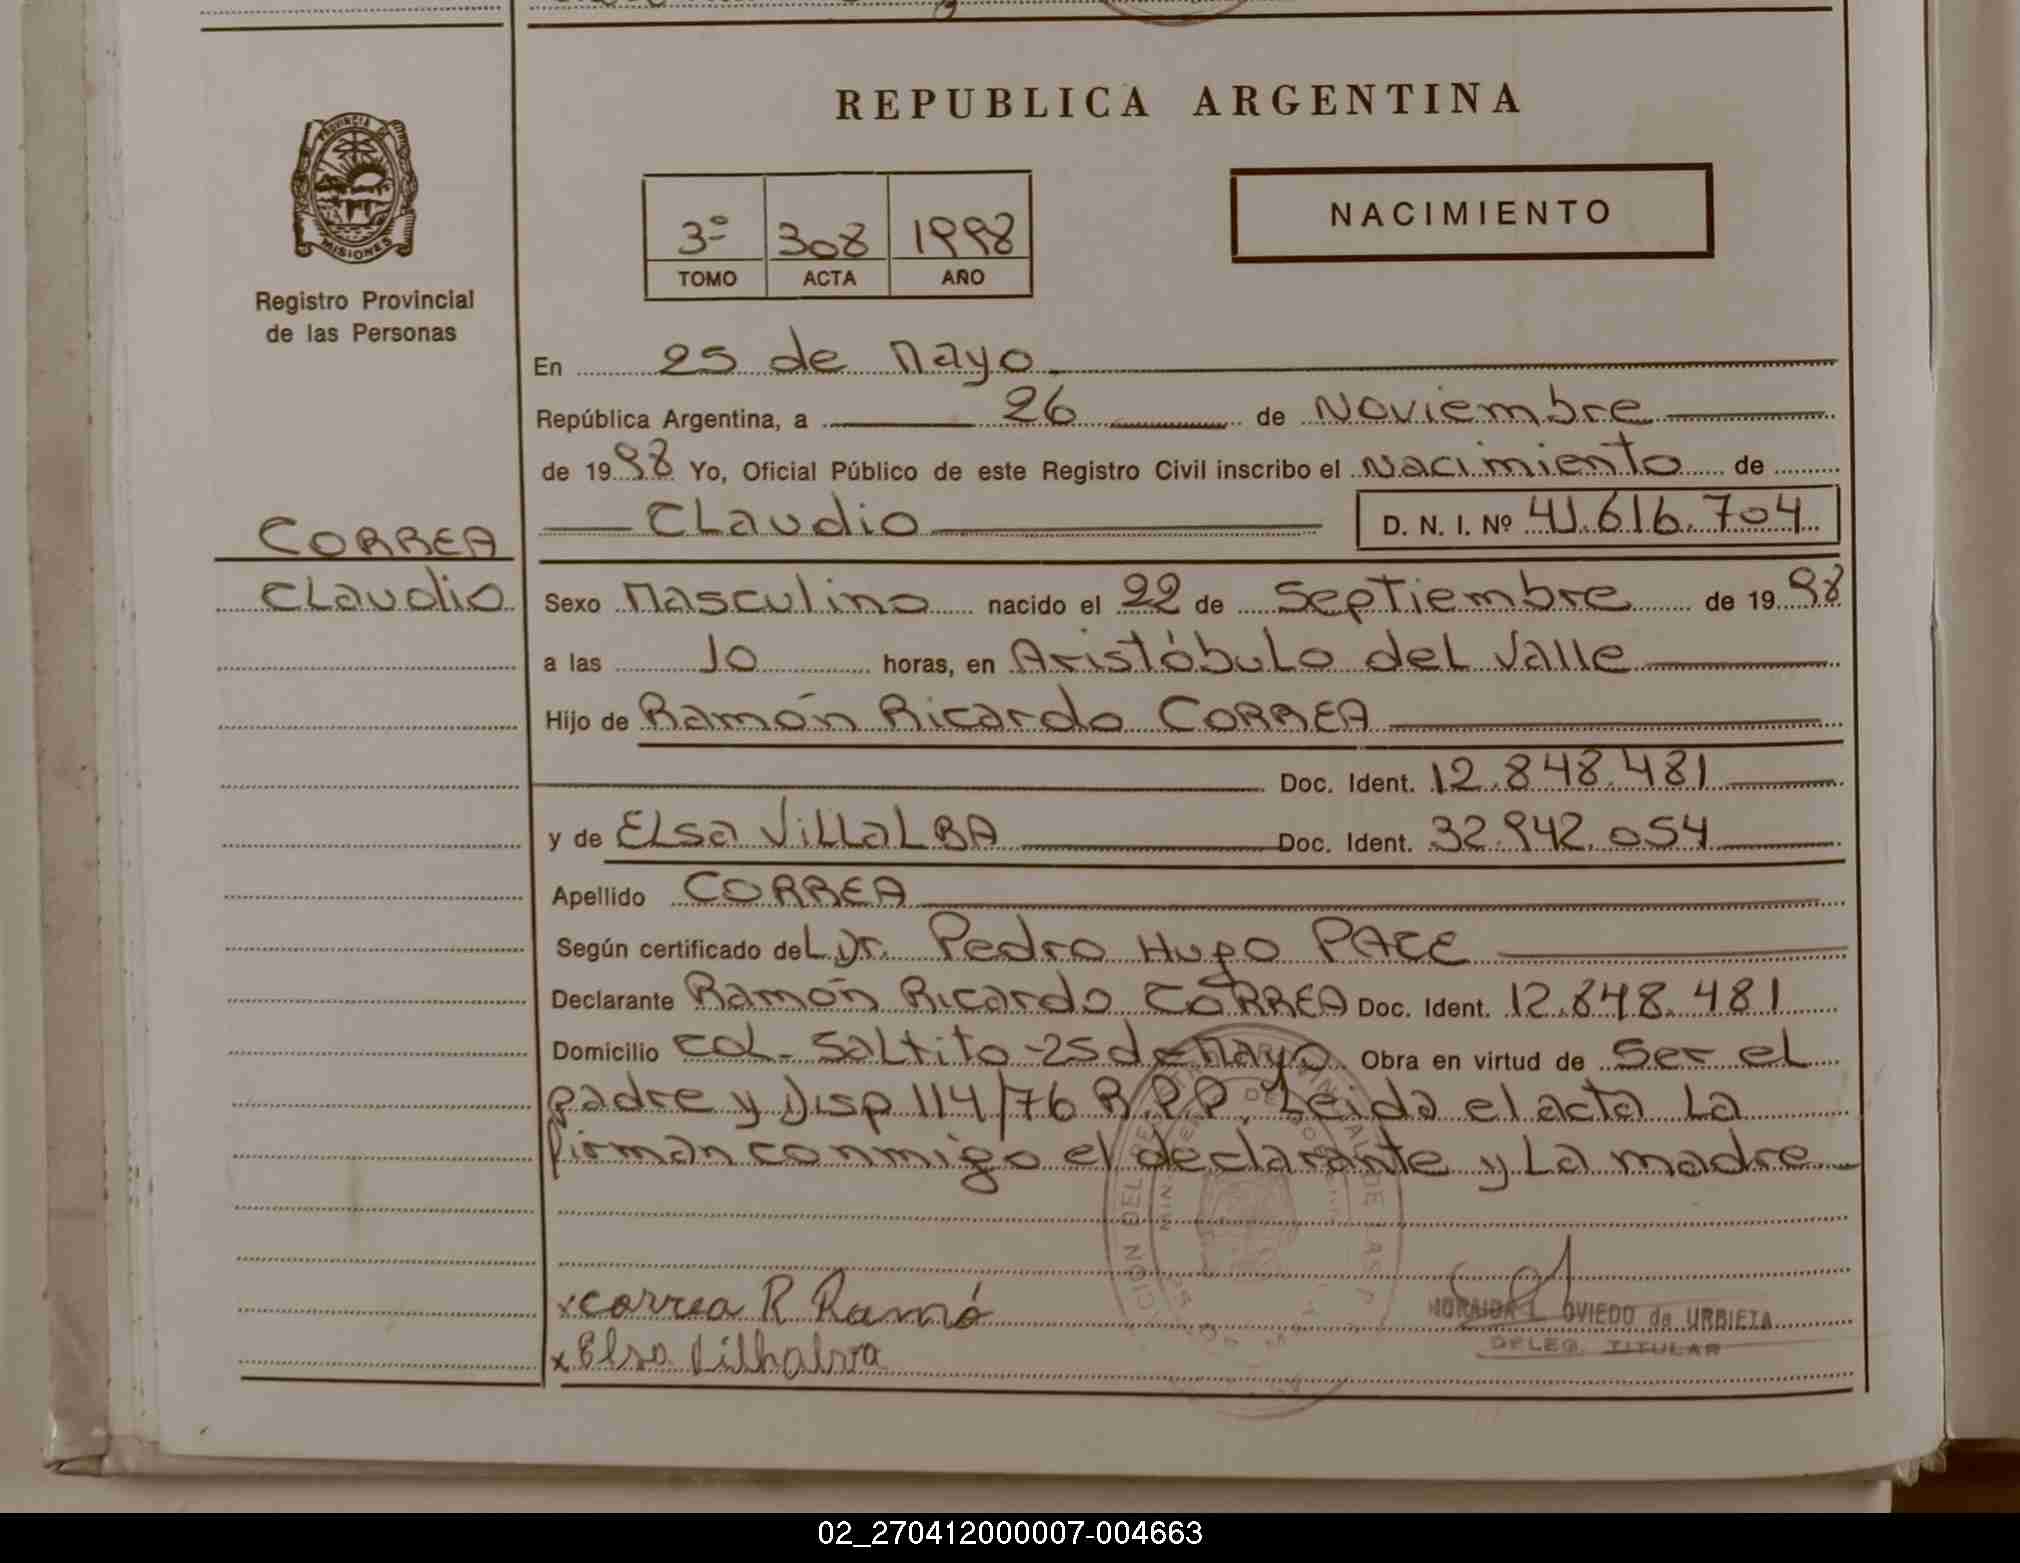 REPUBLICA ARGENTINA
PROVINCIA DE
MISIONES
Registro Provincial
de las Personas
3º 308 1998
TOMO ACTA AÑO
NACIMIENTO
En 25 de Mayo
República Argentina, a 26 de Noviembre
de 1998 Yo, Oficial Público de este Registro Civil inscribo el Nacimiento de
Claudio D. N. I. Nº 41.616.704
CORREA
Claudio
Sexo Masculino nacido el 22 de Septiembre de 1998
a las 10 horas, en Aristóbulo del Valle
Hijo de Ramón Ricardo CORREA
Doc. Ident. 12.848.481
y de Elsa VillaLBA Doc. Ident. 32.942.054
Apellido CORREA
Según certificado del Dr. Pedro Hugo PACE
Declarante Ramón Ricardo CORREA Doc. Ident. 12.848.481
Domicilio Col. Saltito - 25 de Mayo Obra en virtud de ser el
padre y Disp 114/76 R.P.P. Leida el acta La
firman conmigo el declarante y La madre
x correa R Ramó
x Elsa Vilhalva
OVIEDO de URBIETA
DELEG. TITULAR
02_270412000007-004663